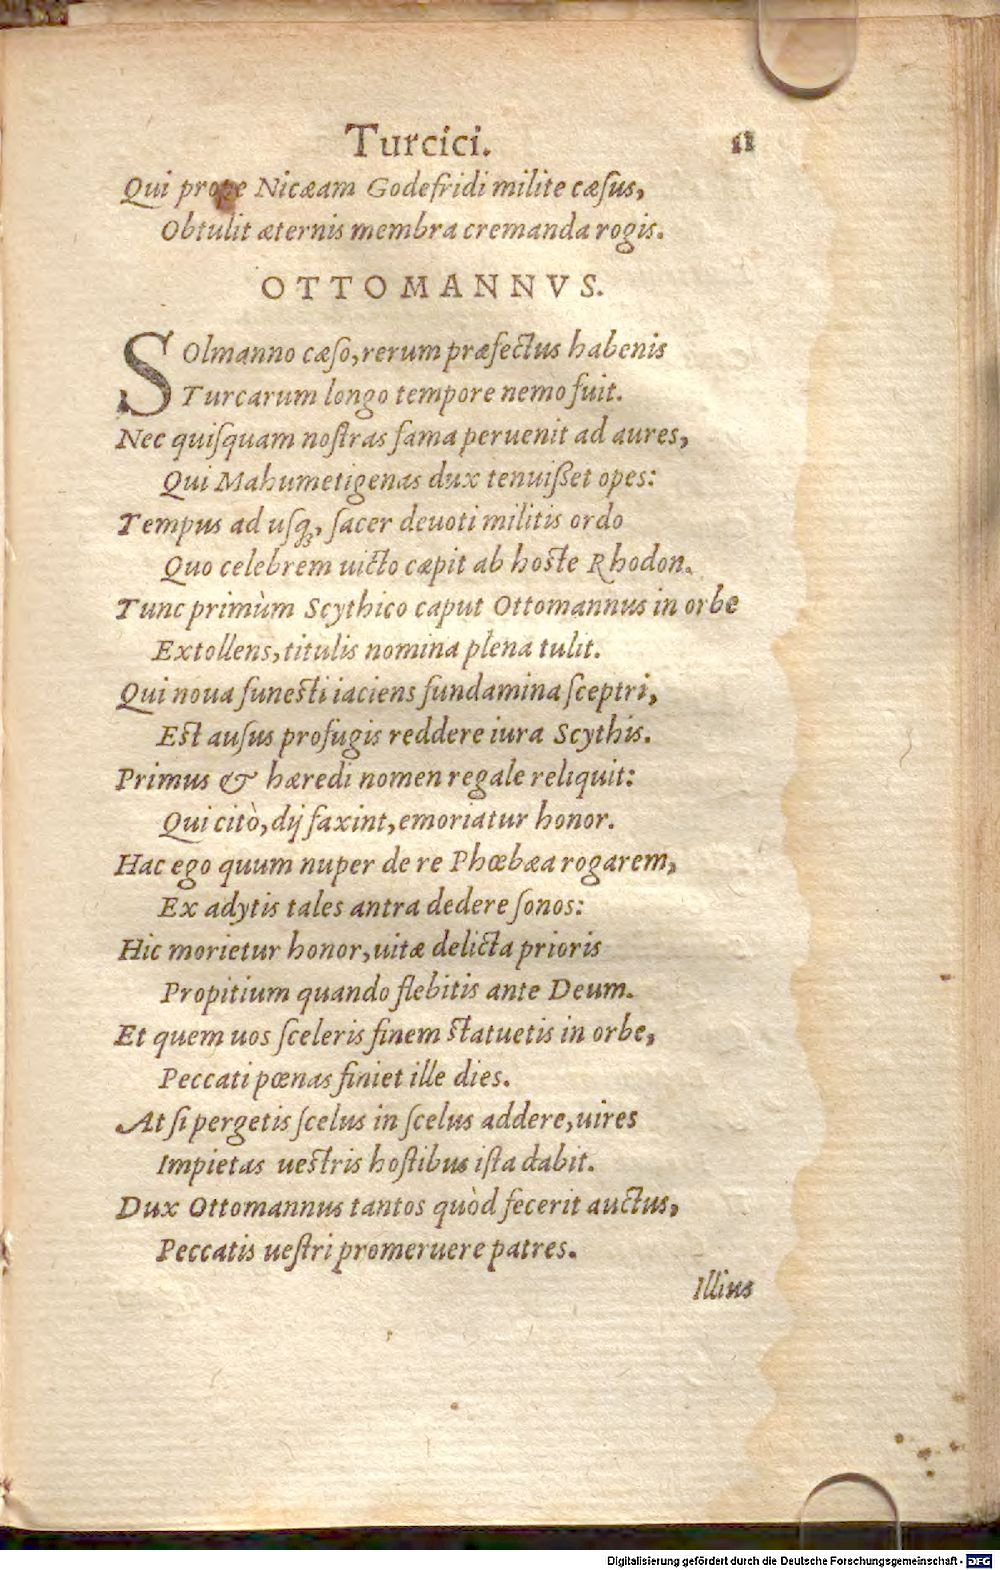 Turcici. 11
Qui prope Nicæam Godefridi milite cæſus,
Obtulit æternis membra cremanda rogis.
OTTOMANNVS.
SOlmanno cæſo, rerum præfectus habenis
Turcarum longo tempore nemo fuit.
Nec quiſquam noſtras fama peruenit ad aures,
Qui Mahumetigenas dux tenuiſſet opes:
Tempus ad uſq́;, ſacer deuoti militis ordo
Quo celebrem uicto cæpit ab hoſte Rhodon.
Tunc primùm Scythico caput Ottomannus in orbe
Extollens, titulis nomina plena tulit.
Qui noua funeſti iaciens fundamina ſceptri,
Eſt auſus profugis reddere iura Scythis.
Primus & hæredi nomen regale reliquit:
Qui citò, dij faxint, emoriatur honor.
Hac ego quum nuper de re Phœbæa rogarem,
Ex adytis tales antra dedere ſonos:
Hic morietur honor, uitæ delicta prioris
Propitium quando flebitis ante Deum.
Et quem uos ſceleris finem ſtatuetis in orbe,
Peccati pœnas finiet ille dies.
At ſi pergetis ſcelus in ſcelus addere, uires
Impietas ueſtris hoſtibus iſta dabit.
Dux Ottomannus tantos quòd fecerit auctus,
Peccatis ueſtri promeruere patres.
Illius
Digitalisierung gefördert durch die Deutsche Forschungsgemeinschaft - DFG